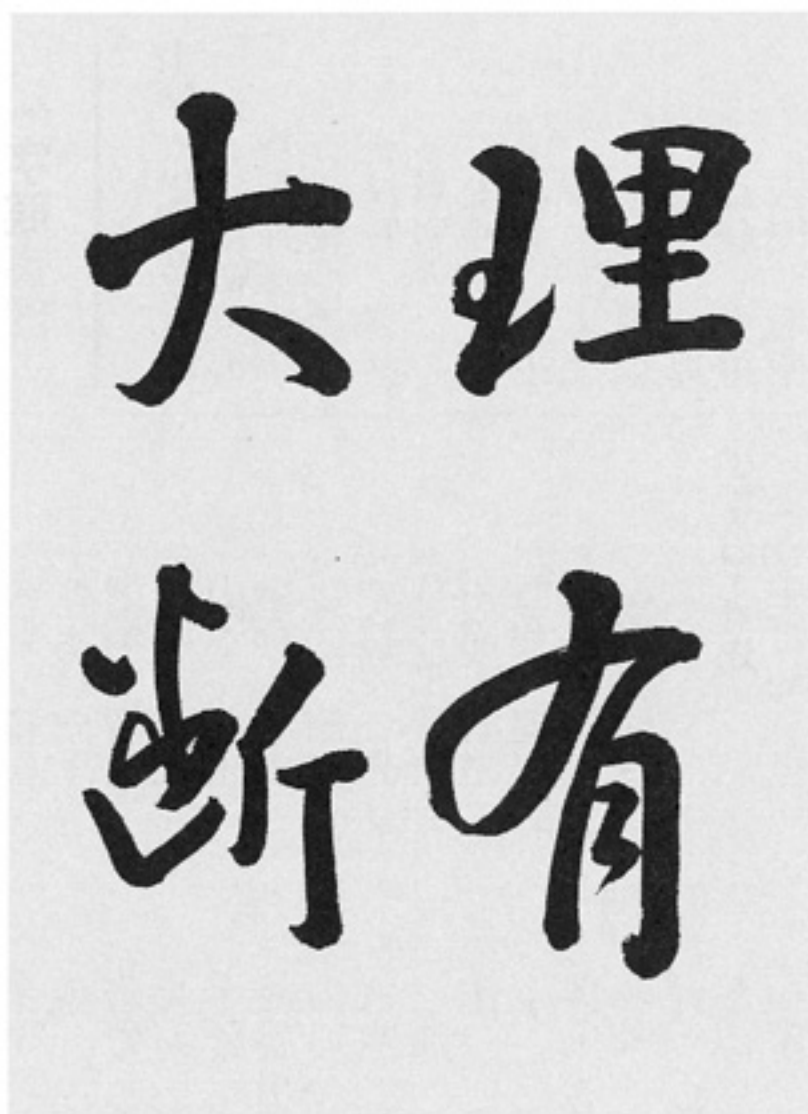 理有
大断